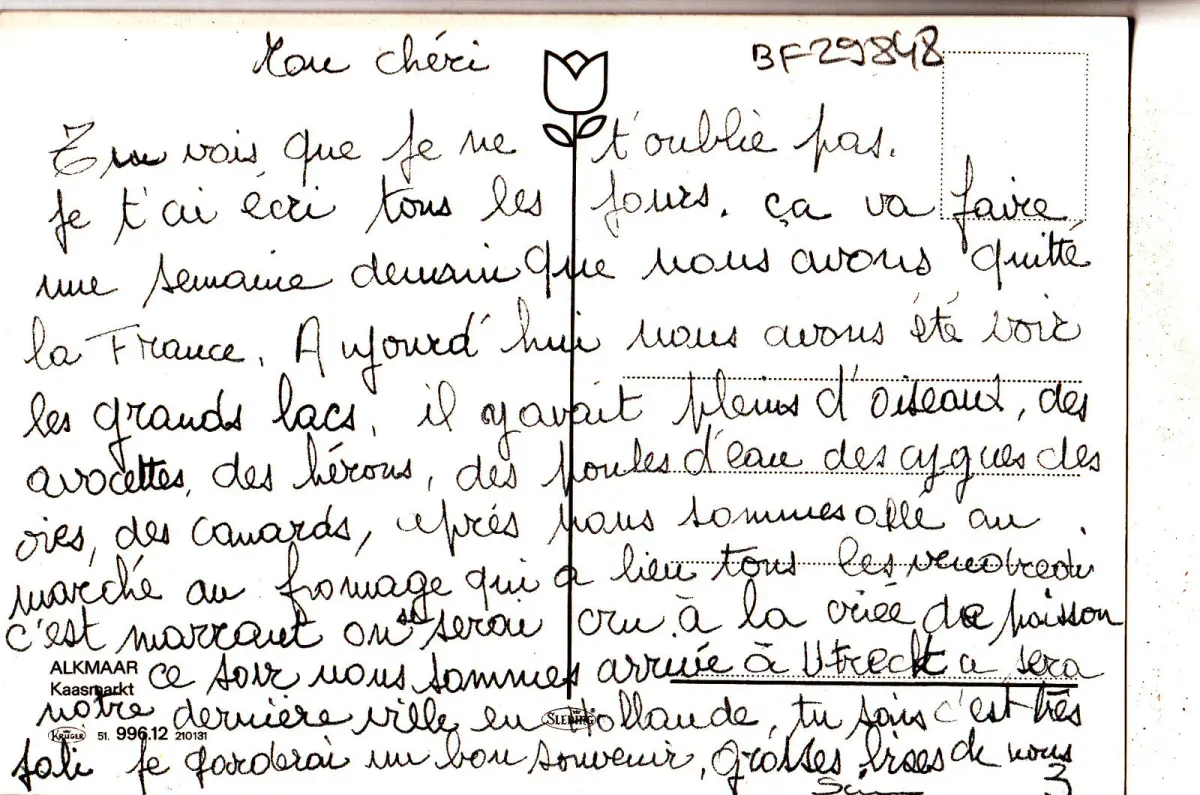 Mon chéri
BF29848
Tu vois que je ne t'oublie pas.
Je t'ai écri tous les jours. ça va faire
une semaine demain que nous avons quitté
la France. Aujourd'hui nous avons été voir
les grands lacs, il y avait pleins d'oiseaux, des
avocettes, des hérons, des poules d'eau des cygnes des
oies, des canards, après nous sommes allé au
marché au fromage qui a lieu tous les vendredi
c'est marrant on se serai cru à la criée de poisson
ALKMAAR
Kaasmarkt
ce soir nous sommes arrivée à Utreckt ça sera
notre dernière ville en Hollande, tu sais c'est très
KRUGER 51. 996.12 210131
SLEDING
joli je garderai un bon souvenir, grosses bises de nous
3